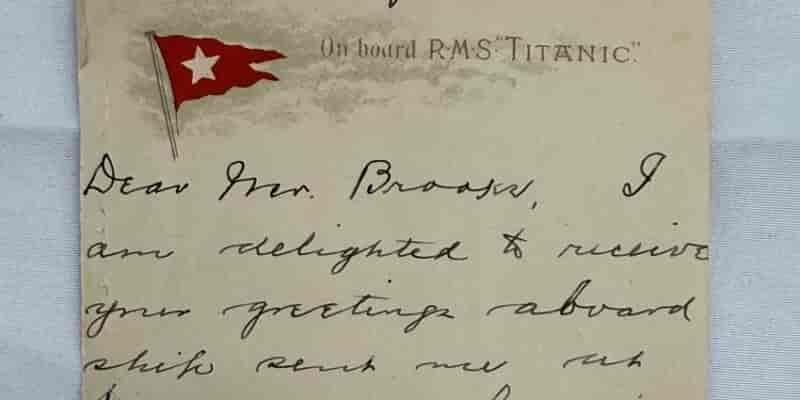 On board R·M·S "TITANIC."
Dear Mr. Brooks, I
am delighted to receive
your greetings aboard
ship sent me at